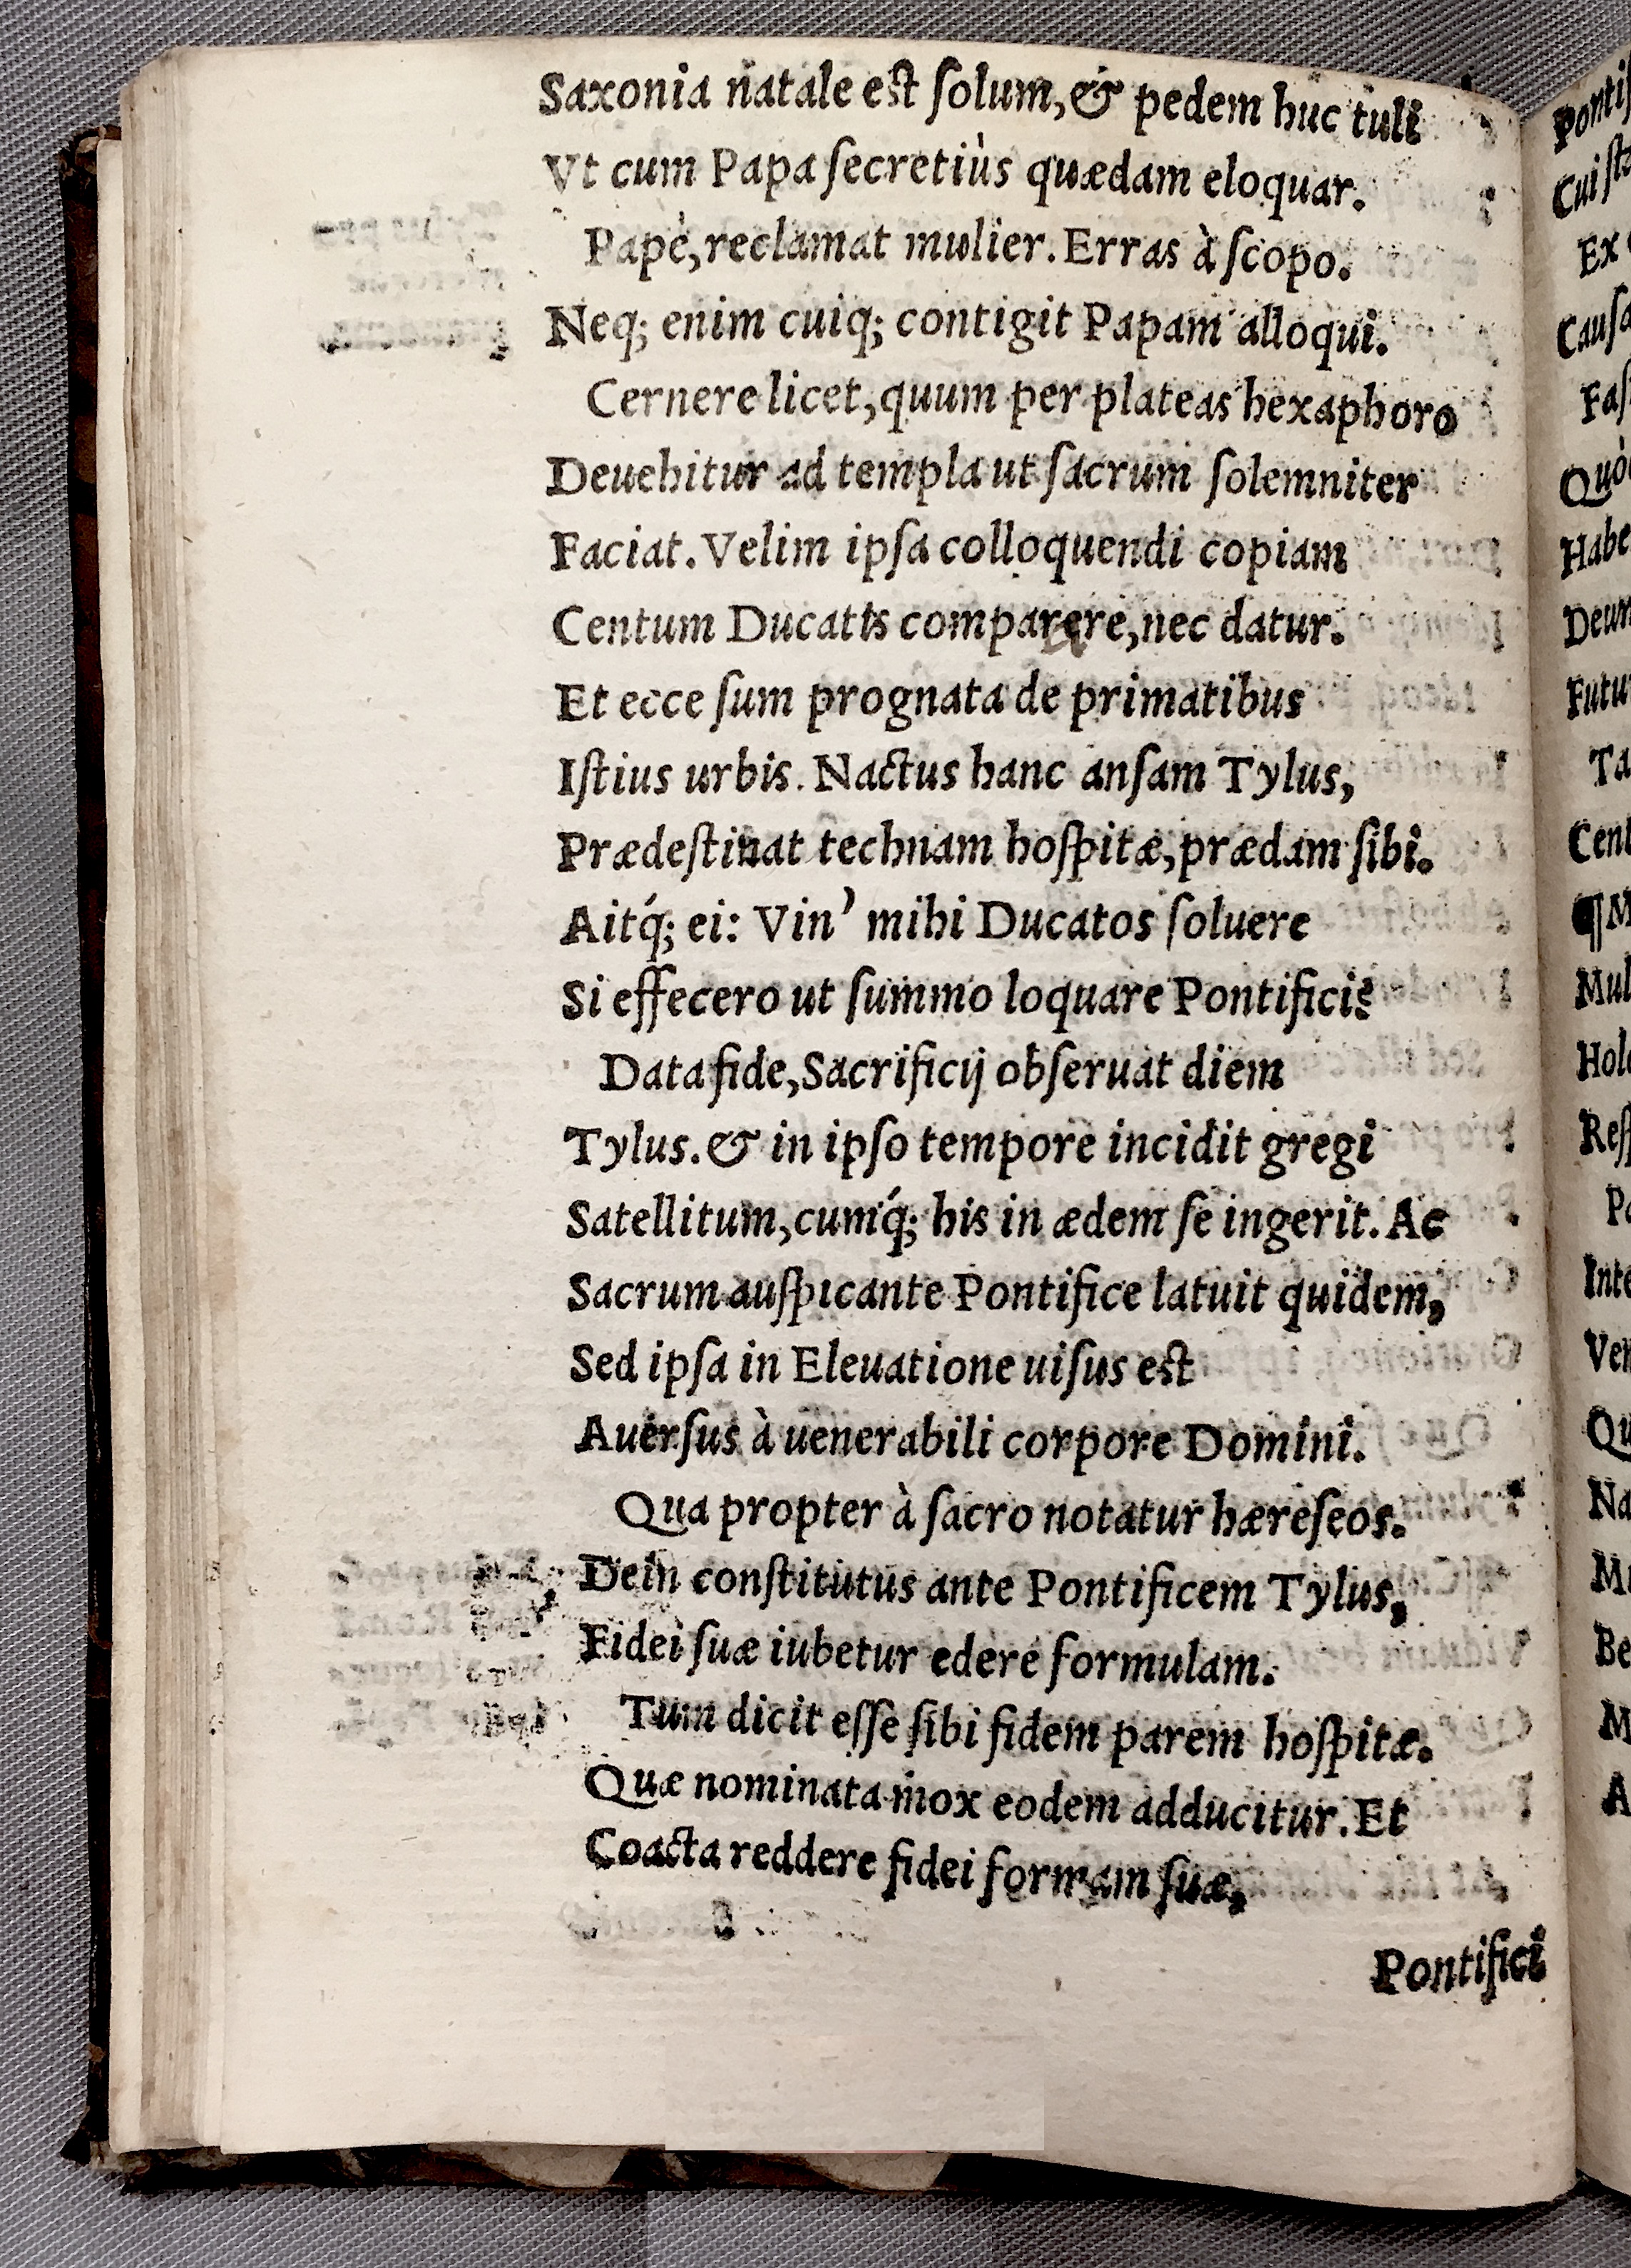 Saxonia natale est ſolum, & pedem huc tuli
Vt cum Papa ſecretiùs quædam eloquar.
Papè, reclamat mulier. Erras à ſcopo.
Neq; enim cuiq; contigit Papam alloqui.
Cernere licet, quum per plateas hexaphoro
Deuehitur ad templa ut ſacrum ſolemniter
Faciat. Velim ipſa colloquendi copiam
Centum Ducatis comparere, nec datur.
Et ecce ſum prognata de primatibus
Iſtius urbis. Nactus hanc anſam Tylus,
Prædeſtinat technam hoſpitæ, prædam ſibi.
Aitq́; ei: Vin’ mihi Ducatos ſoluere
Si effecero ut ſummo loquare Pontifici?
Data fide, Sacrificij obſeruat diem
Tylus. & in ipſo tempore incidit gregi
Satellitum, cumq́; his in ædem ſe ingerit. Ac
Sacrum auſpicante Pontifice latuit quidem,
Sed ipſa in Eleuatione uiſus est
Auerſus à uenerabili corpore Domini.
Qua propter à ſacro notatur hæreſeos.
Dein conſtitutus ante Pontificem Tylus,
Fidei ſuæ iubetur edere formulam.
Tum dicit eſſe ſibi fidem parem hoſpitæ.
Quæ nominata mox eodem adducitur. Et
Coacta reddere fidei formam ſuæ,
Pontifici
Cui
Ex
Ta
Na
Be
M
A